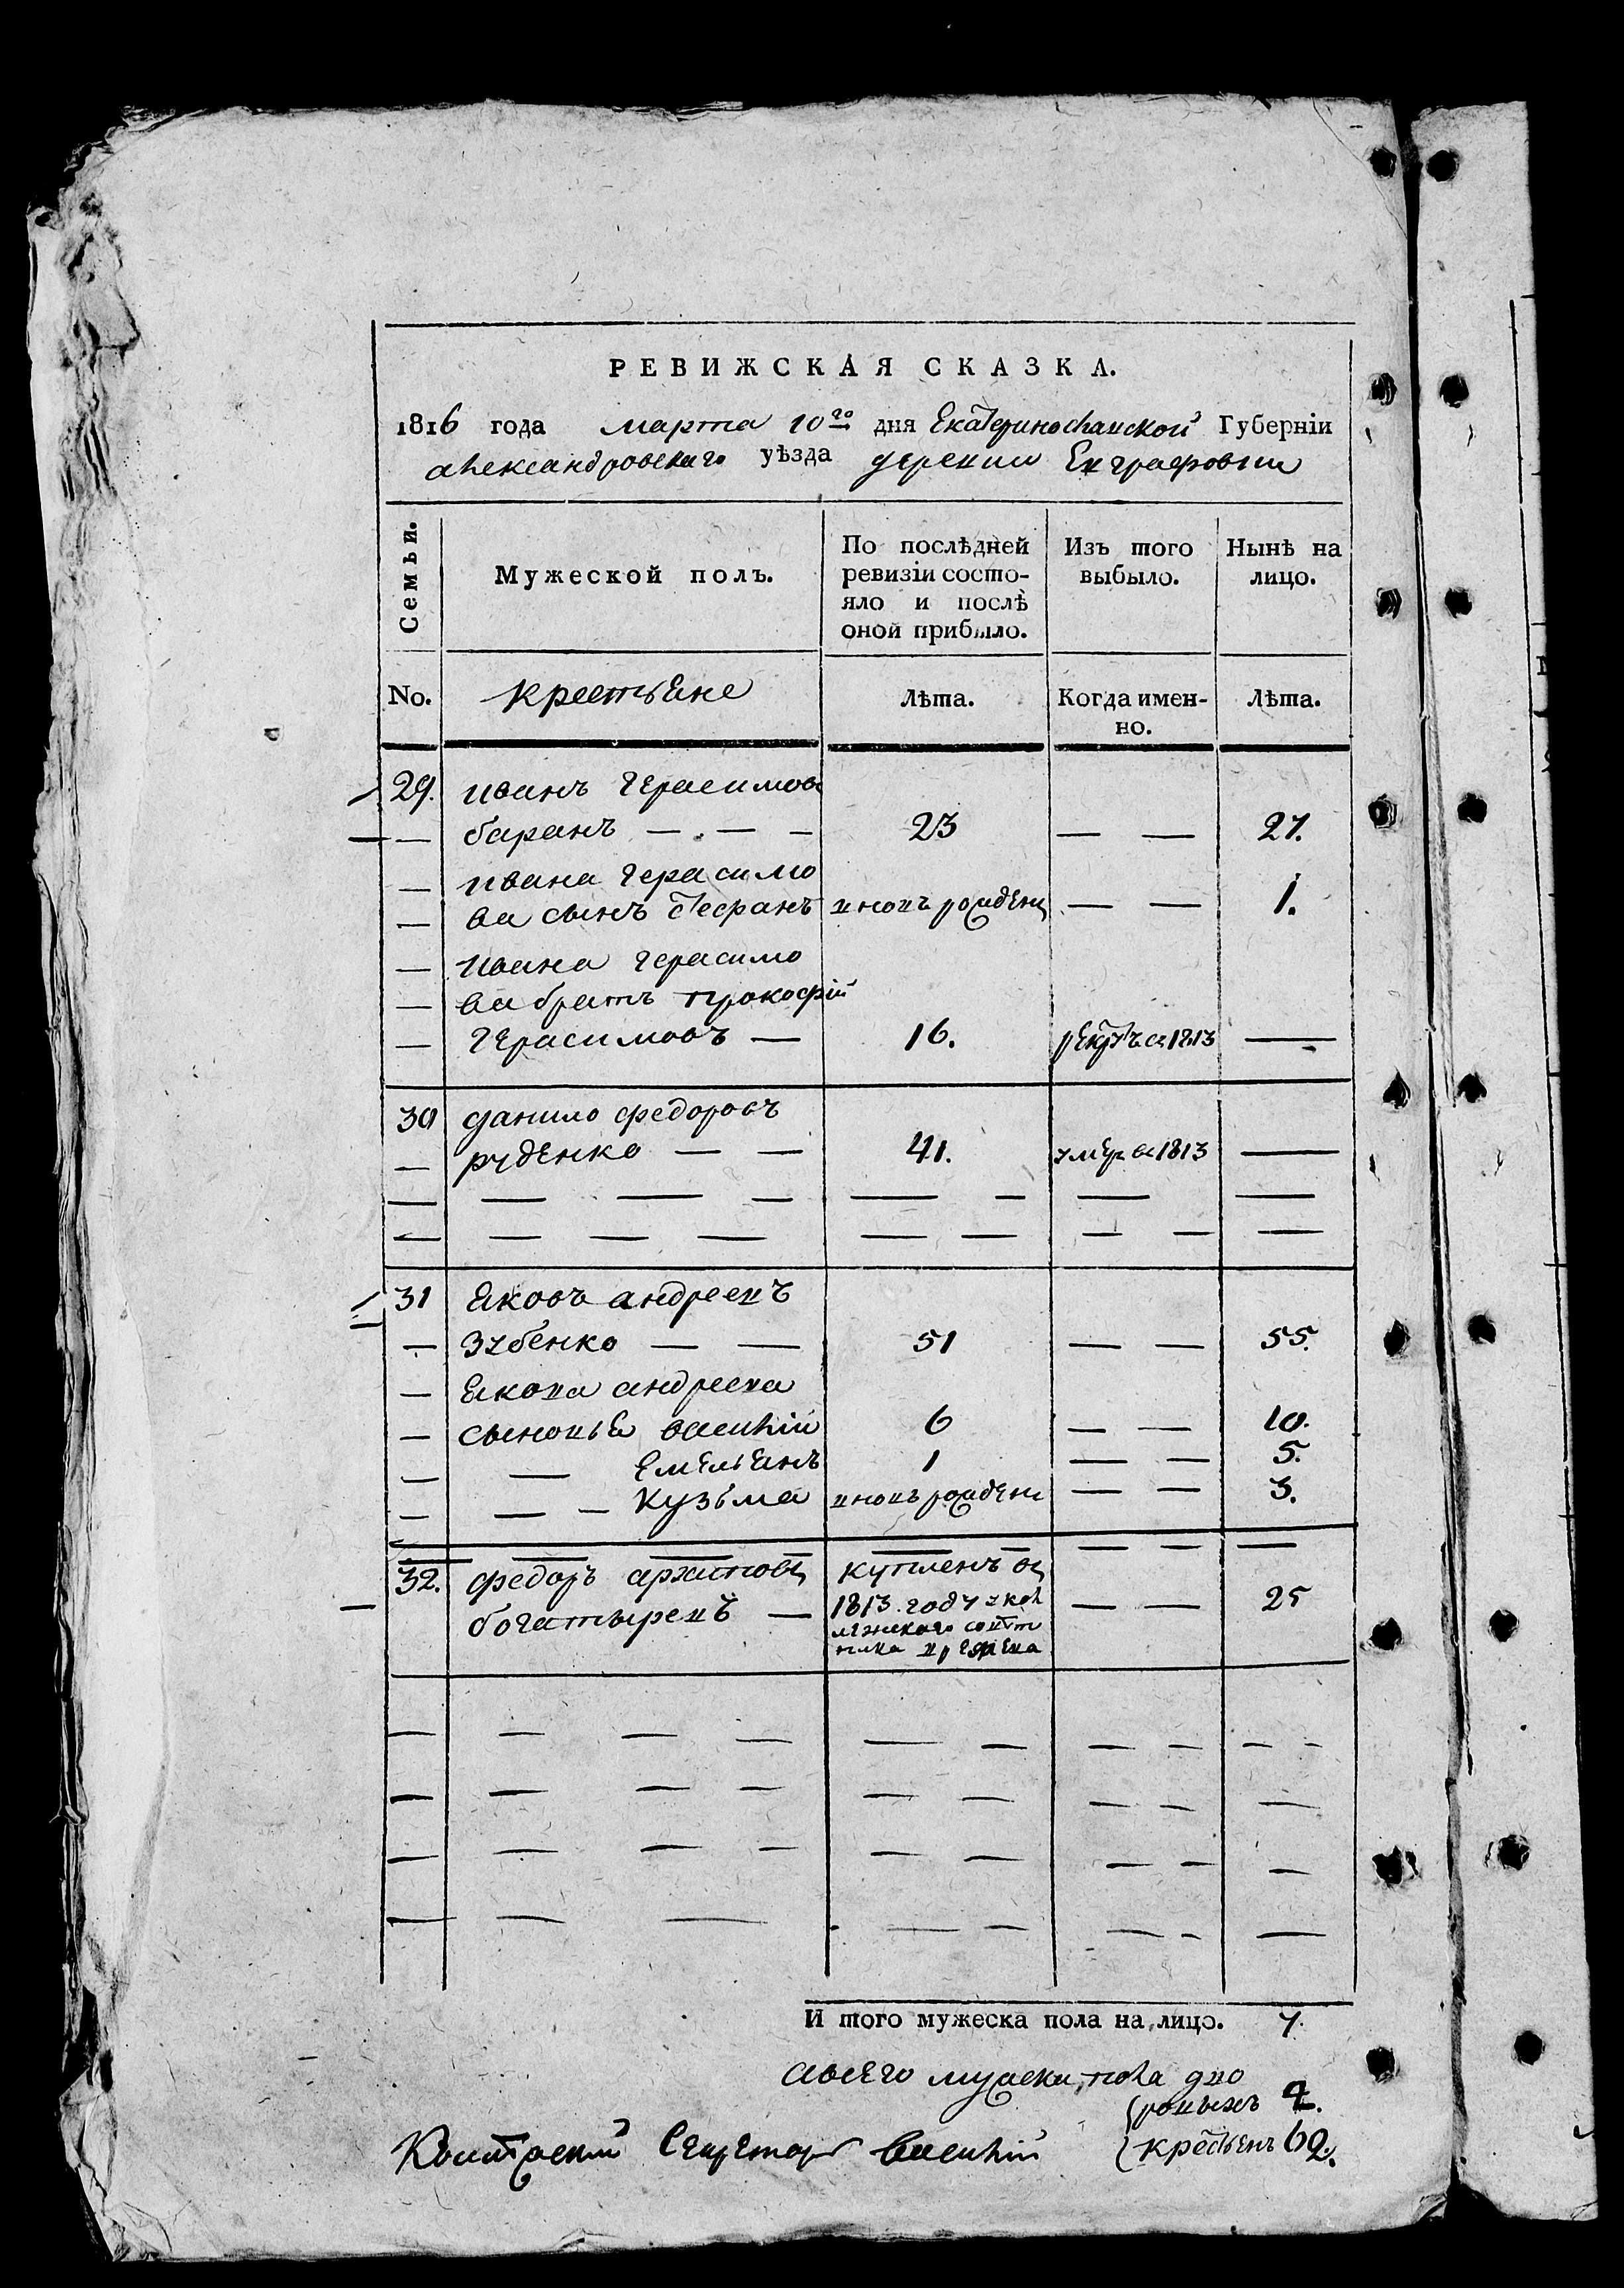 РЕВИЖСКАЯ СКАЗКА.
1816 года марта 10го дня Екатеринославской Губерніи
александровскаго уѣзда деревни Евграфовки
Семьи. Мужеской полъ. По послѣдней ревизіи состо- Изъ того выбыло. Нынѣ на лицо.
яло и послѣ
оной прибыло.
No. крестьяне Лѣта. Когда имен- Лѣта.
но.
29. иванъ герасимовъ
баранъ 23 27.
ивана герасимо
ва сынъ стефанъ вновь рожденъ 1.
ивана герасимо
ва братъ прокофій
герасимовъ 16. рекрутъ въ 1813
30 данило федоровъ
руденко 41. умеръ въ 1813
31 яковъ андреевъ
зубенко 51 55.
якова андреева
сыновья василій 6 10.
емельянъ 1 5.
кузьма вновь рожденъ 3.
32. федоръ архиповъ купленъ въ
богатыревъ 1813. году у кол 25
лежскаго совѣт
ника
И того мужеска пола на лицо. 7.
а всего мужска пола дво
ровыхъ 4.
крестьянъ 62.
секретарь василій